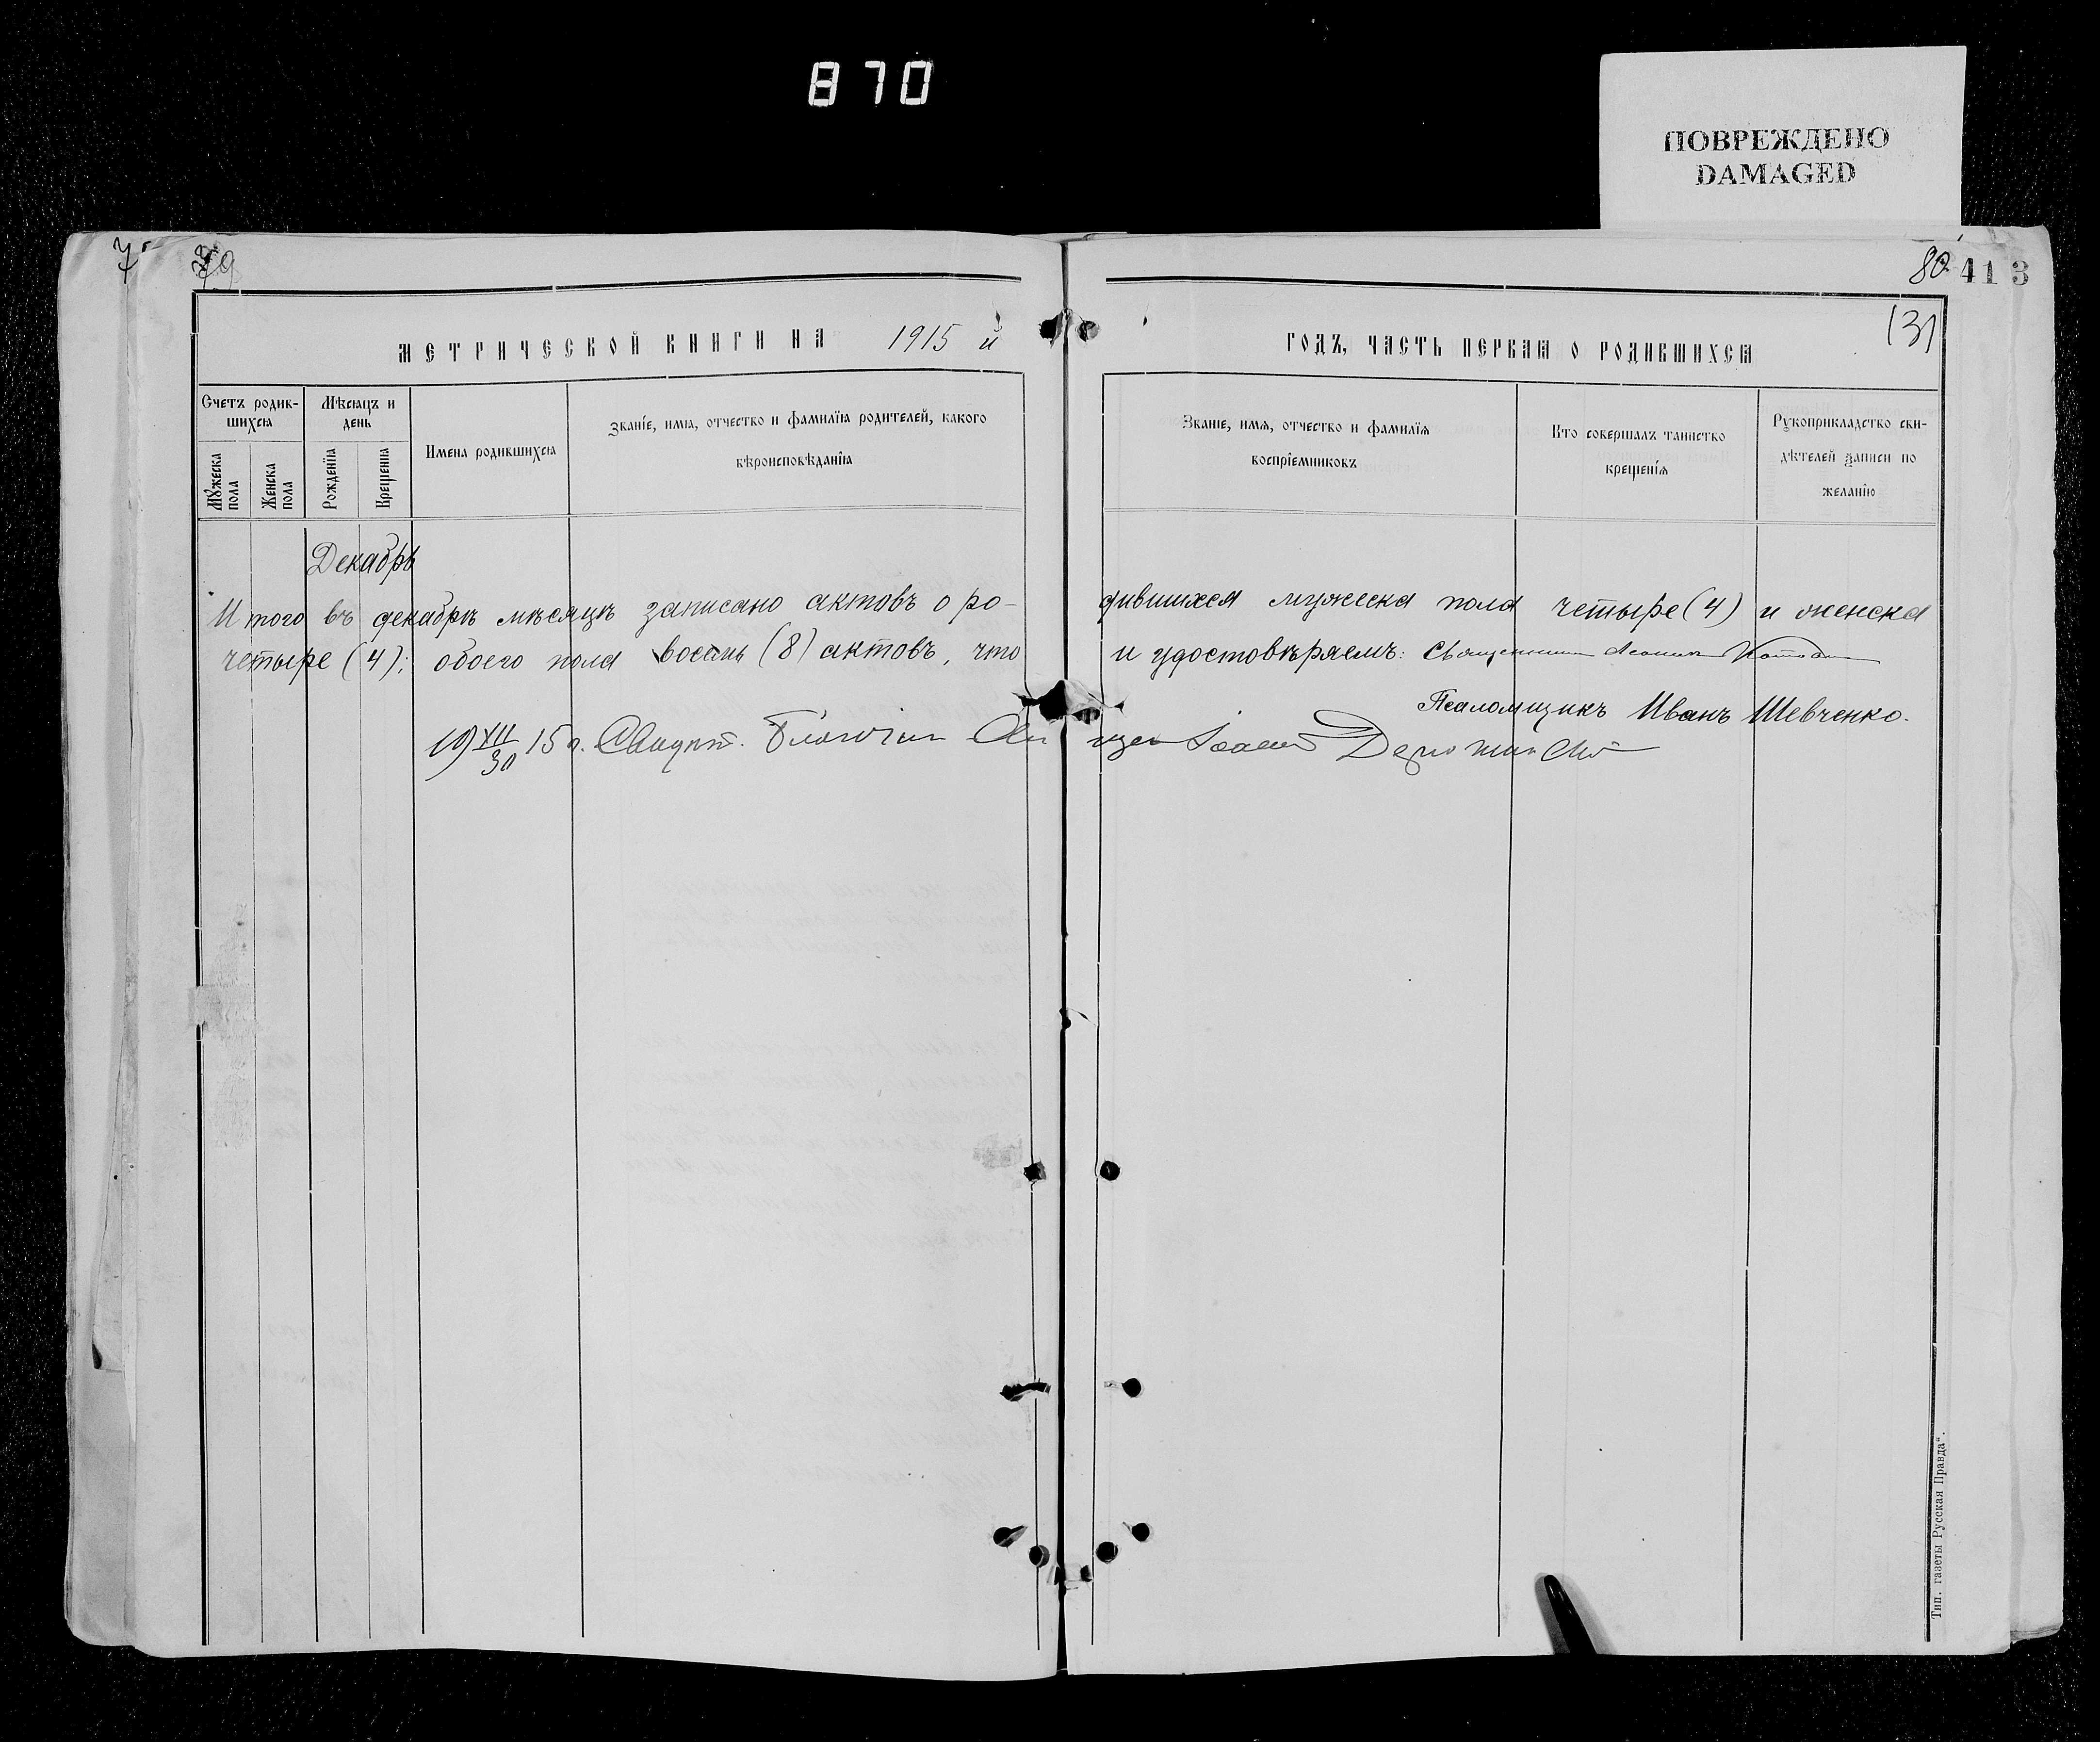 870
ПОВРЕЖДЕНО
DAMAGED
79
80
413
131
МЕТРИЧЕСКОЙ КНИГИ НА 1915 й
ГОДЪ, ЧАСТЬ ПЕРВАЯ О РОДИВШИХСЯ
Счетъ родив-
шихся
Мѣсяцъ и
день
Мужеска
пола
Женска
пола
Рожденїя
Крещенія
Имена родившихся
Званїе, имя, отчество и фамилїя родителей, какого
вѣроисповѣданїя
Званїе, имя, отчество и фамилїя
воспрїемниковъ
Кто совершалъ таинство
крещенїя
Рукоприкладство сви-
дѣтелей записи по
желанїю
Декабрь
Итого въ декабрѣ мѣсяцѣ записано актовъ о ро-
дившихся мужеска пола четыре (4) и женска
четыре (4); обоего пола восемь (8) актовъ, что
и удостовѣряемъ: Священникъ
Псаломщикъ Иванъ Шевченко.
19 XII/30 15 г.
Тип. газеты „Русская Правда“.